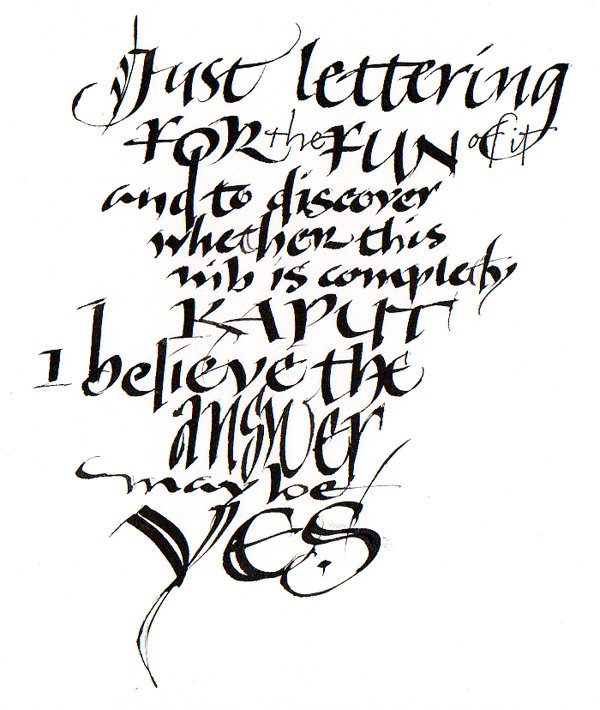 Just lettering
FOR the FUN of it
and to discover
whether this
nib is completly
KAPUT
I believe the
answer
may be
YES